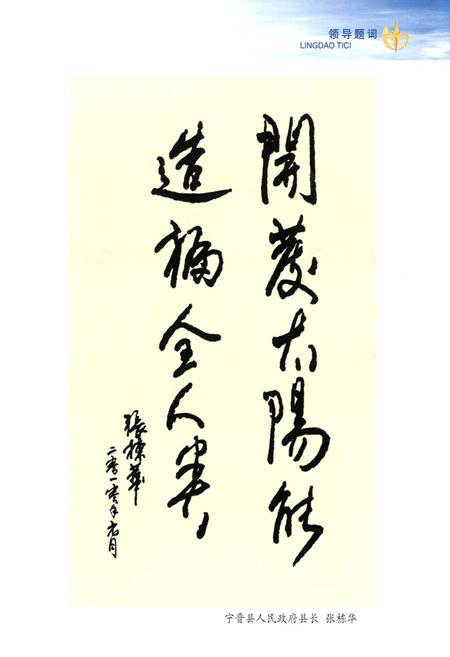 领导题词
LINGDAO TICI
開發太陽能
造福全人类
張棟華
二零一零年元月
宁晋县人民政府县长 张栋华